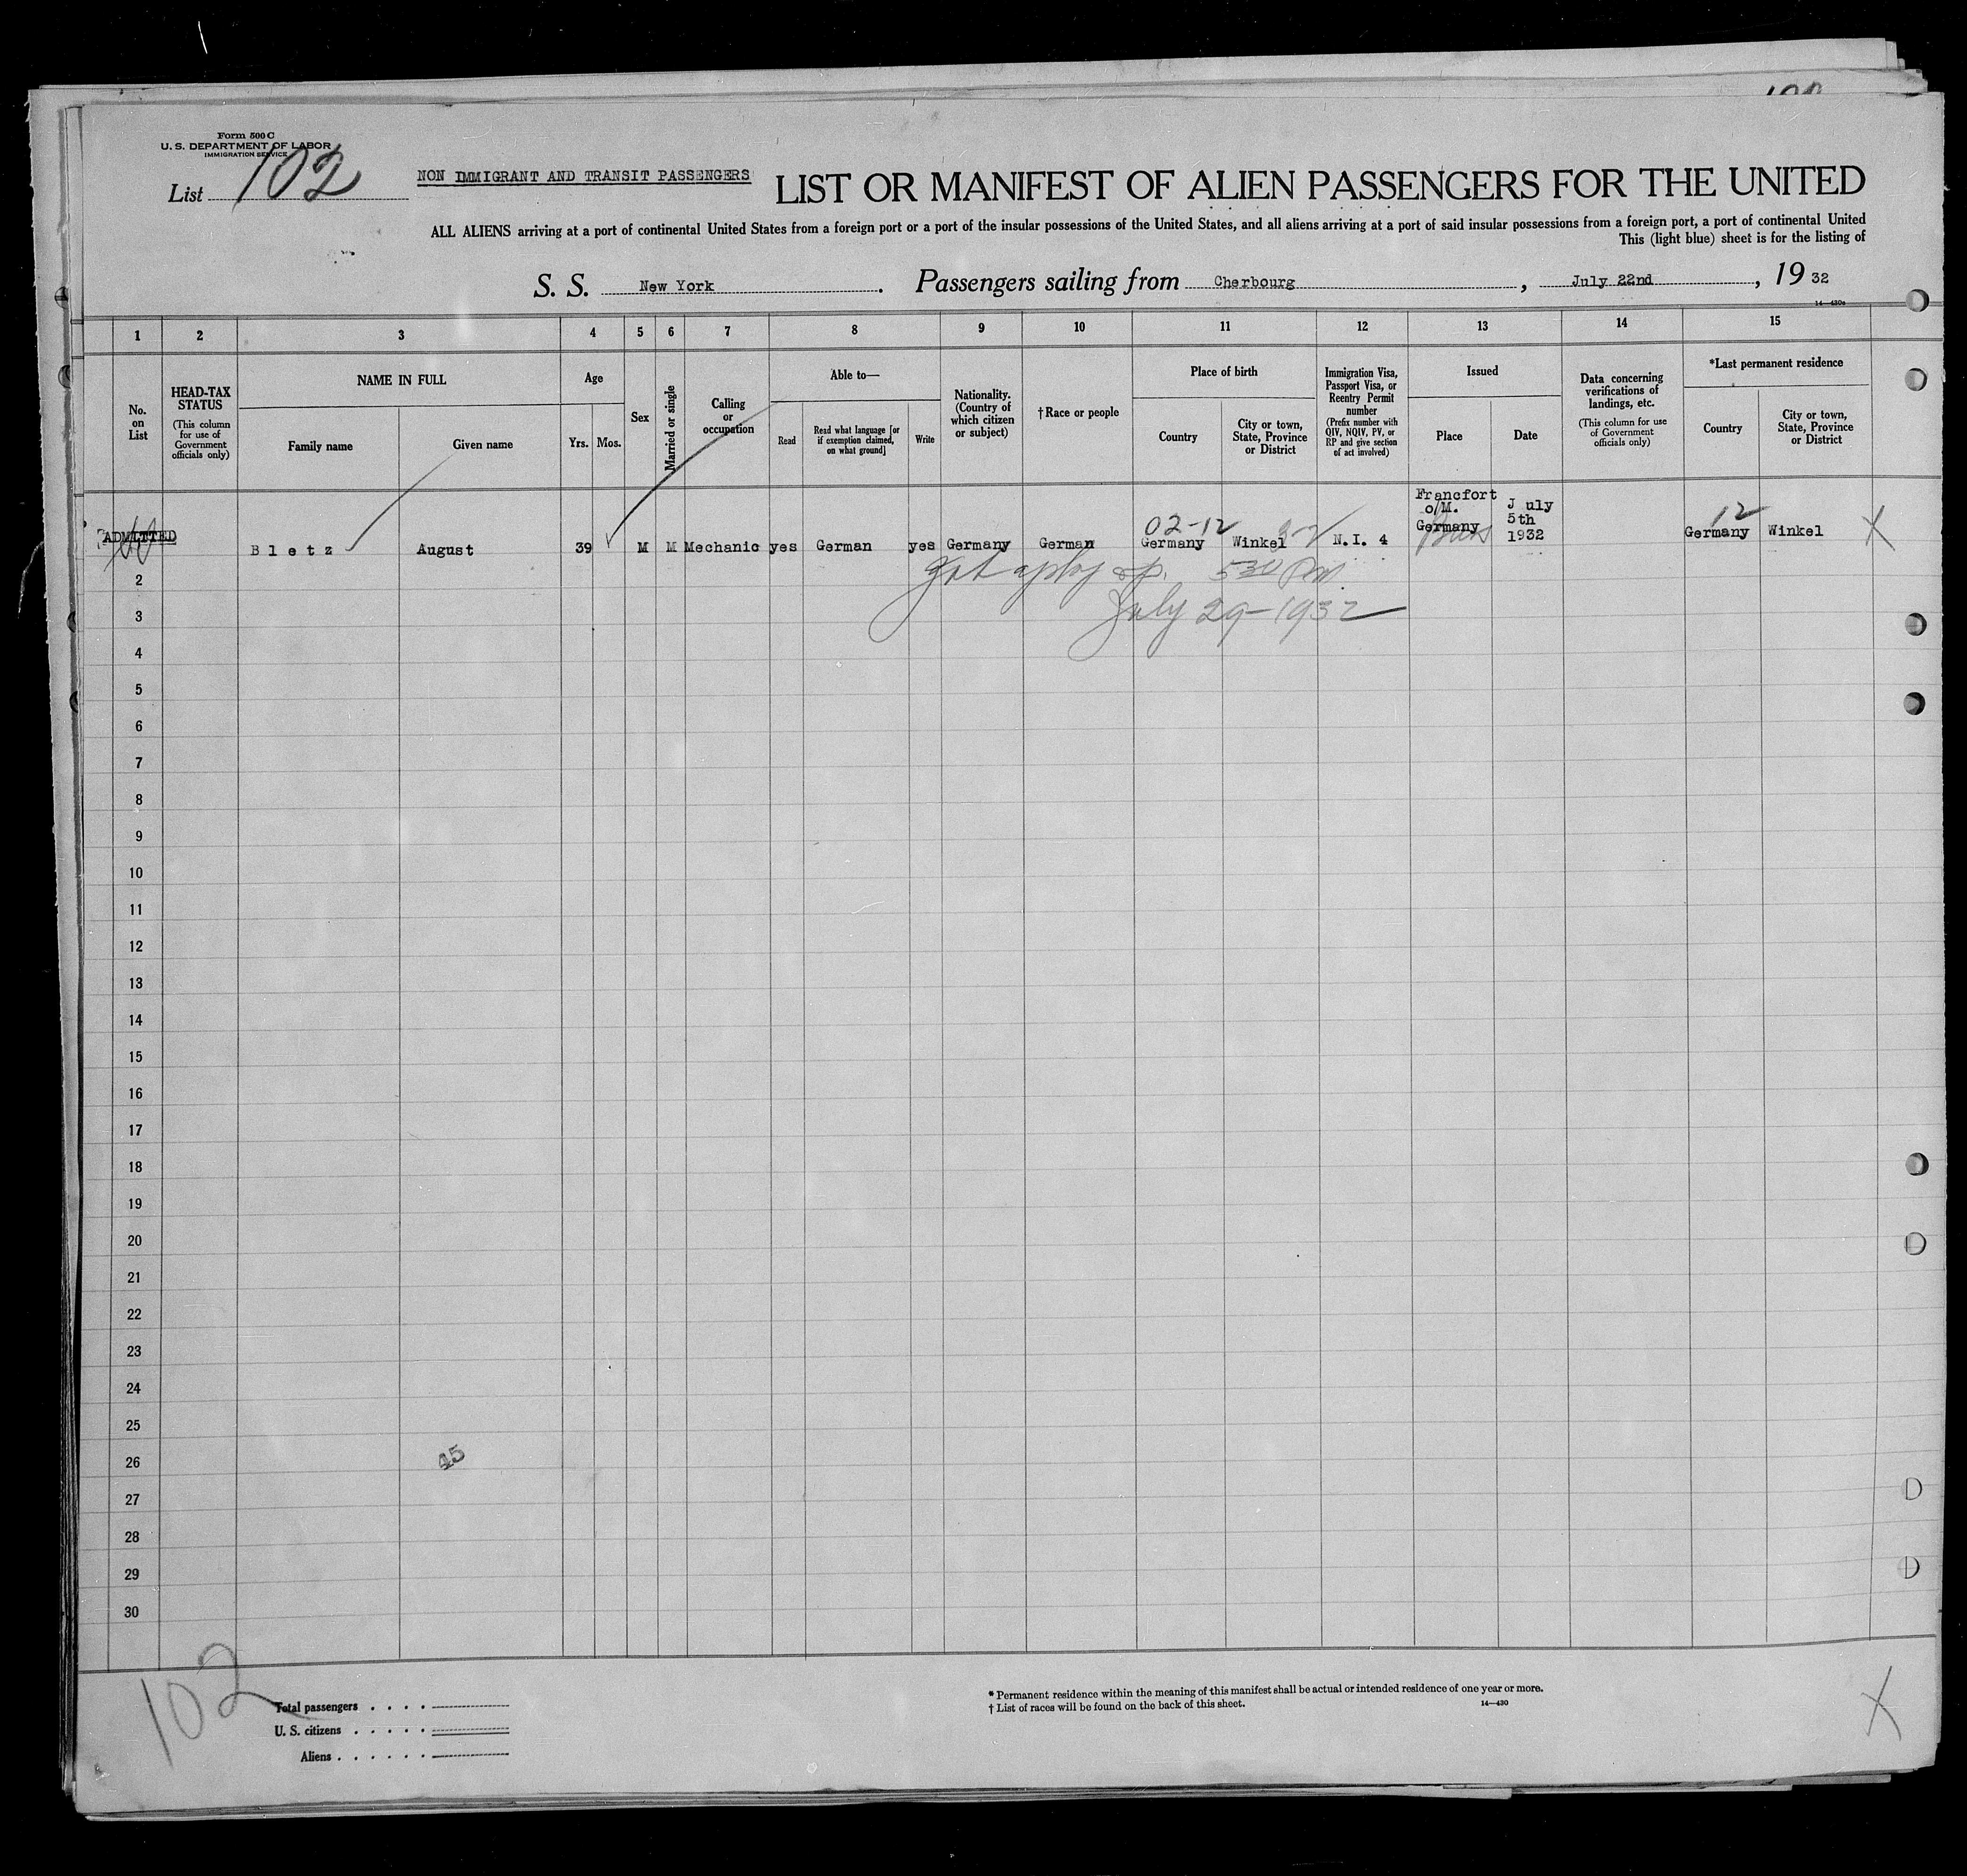 Form 500 C
U. S. DEPARTMENT OF LABOR
IMMIGRATION SERVICE
List 102
NON IMMIGRANT AND TRANSIT PASSENGERS
LIST OR MANIFEST OF ALIEN PASSENGERS FOR THE UNITED
ALL ALIENS arriving at a port of continental United States from a foreign port or a port of the insular possessions of the United States, and all aliens arriving at a port of said insular possessions from a foreign port, a port of continental United
This (light blue) sheet is for the listing of
S. S. New York. Passengers sailing from Cherbourg, July 22nd, 19 32
14—430a
1 2 3 4 5 6 7 8 9 10 11 12 13 14 15
No. on List
HEAD-TAX STATUS
(This column for use of Government officials only)
NAME IN FULL
Family name
Given name
Age
Yrs. Mos.
Sex
Married or single
Calling or occupation
Able to—
Read
Read what language [or if exemption claimed, on what ground]
Write
Nationality. (Country of which citizen or subject)
†Race or people
Place of birth
Country
City or town, State, Province or District
Immigration Visa, Passport Visa, or Reentry Permit number
(Prefix number with QIV, NQIV, PV, or RP and give section of act involved)
Issued
Place
Date
Data concerning verifications of landings, etc.
(This column for use of Government officials only)
*Last permanent residence
Country
City or town, State, Province or District
ADMITTED
Bletz August 39 M M Mechanic yes German yes Germany German
02-12
Germany Winkel N.I. 4
Francfort o/M. Germany
July 5th 1932
12
Germany Winkel X
530 Pm
July 29-1932
2
3
4
5
6
7
8
9
10
11
12
13
14
15
16
17
18
19
20
21
22
23
24
25
26
45
27
28
29
30
102
Total passengers . . . .
U. S. citizens . . . . .
Aliens . . . . . .
* Permanent residence within the meaning of this manifest shall be actual or intended residence of one year or more.
† List of races will be found on the back of this sheet.
14—430
X